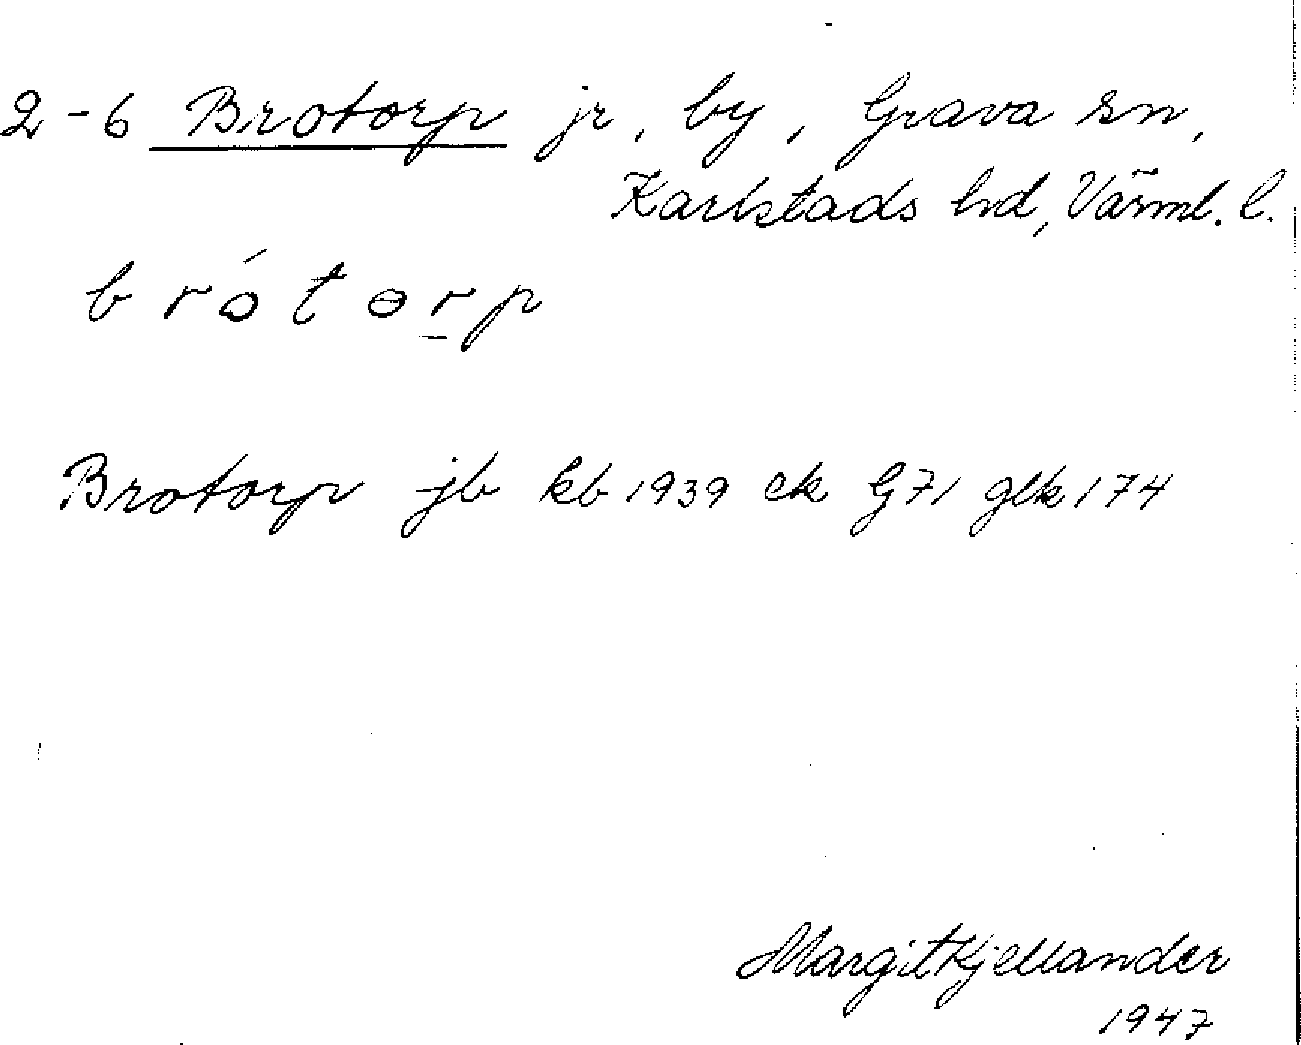 2-6 Brotorp jr, by, Grava sn,
Karlstads hd, Värml. l.
brótɵr̠p
Brotorp jb kb 1939 ek G71 glk 174
Margit Kjellander
1947